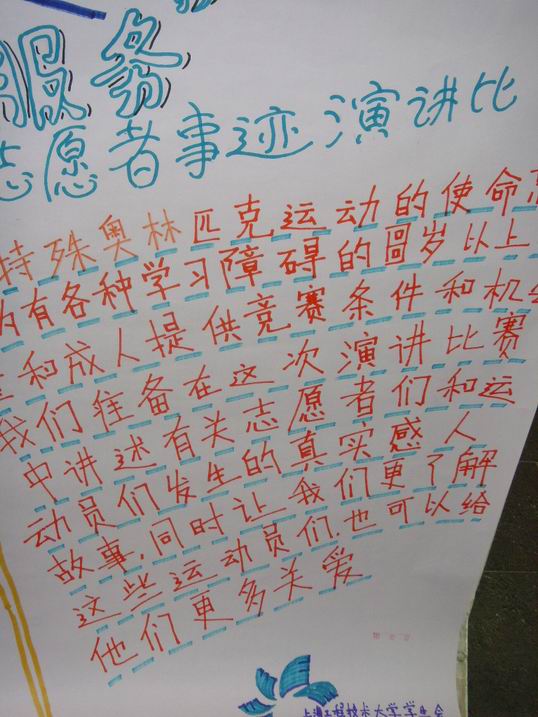 服务
志愿者事迹演讲比
特殊奥林匹克运动的使命
为有各种学习障碍的岁以上
和成人提供竞赛条件和机
我们准备在这次演讲比赛
中讲述有关志愿者们和运
动员们发生的真实感人
故事,同时让我们更了解
这些运动员们,也可以给
他们更多关爱
上海工程技术大学学生会